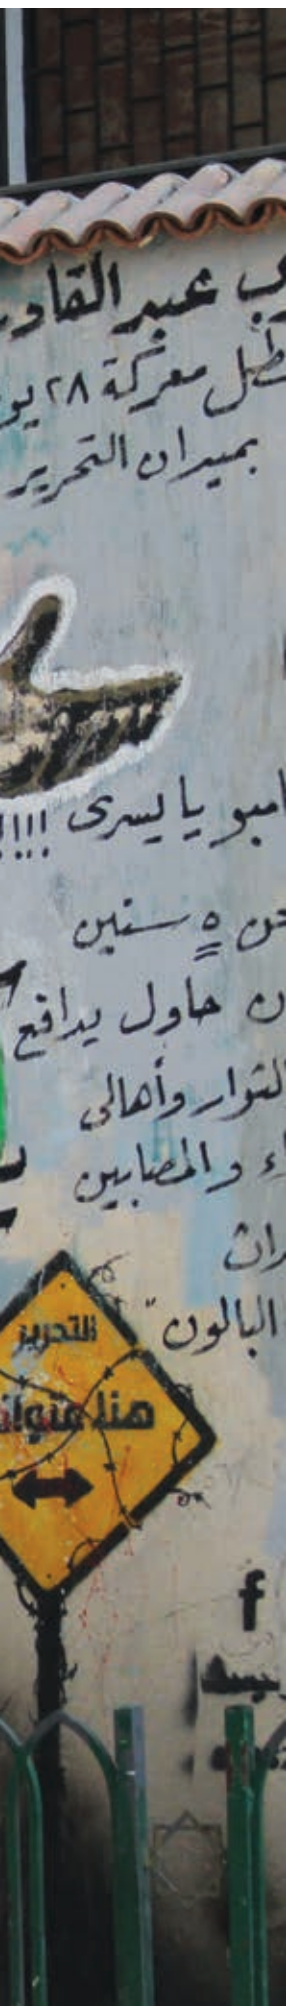 ي عبد القادر
بطل معركة ٢٨ يو
بميدان التحرير
امبو يا يسرى !!!!
حن ٥ سنين
ن حاول يدافع
الثوار وأهالى
اء والمصابين
راث
البالون"
التحرير
هنا
f